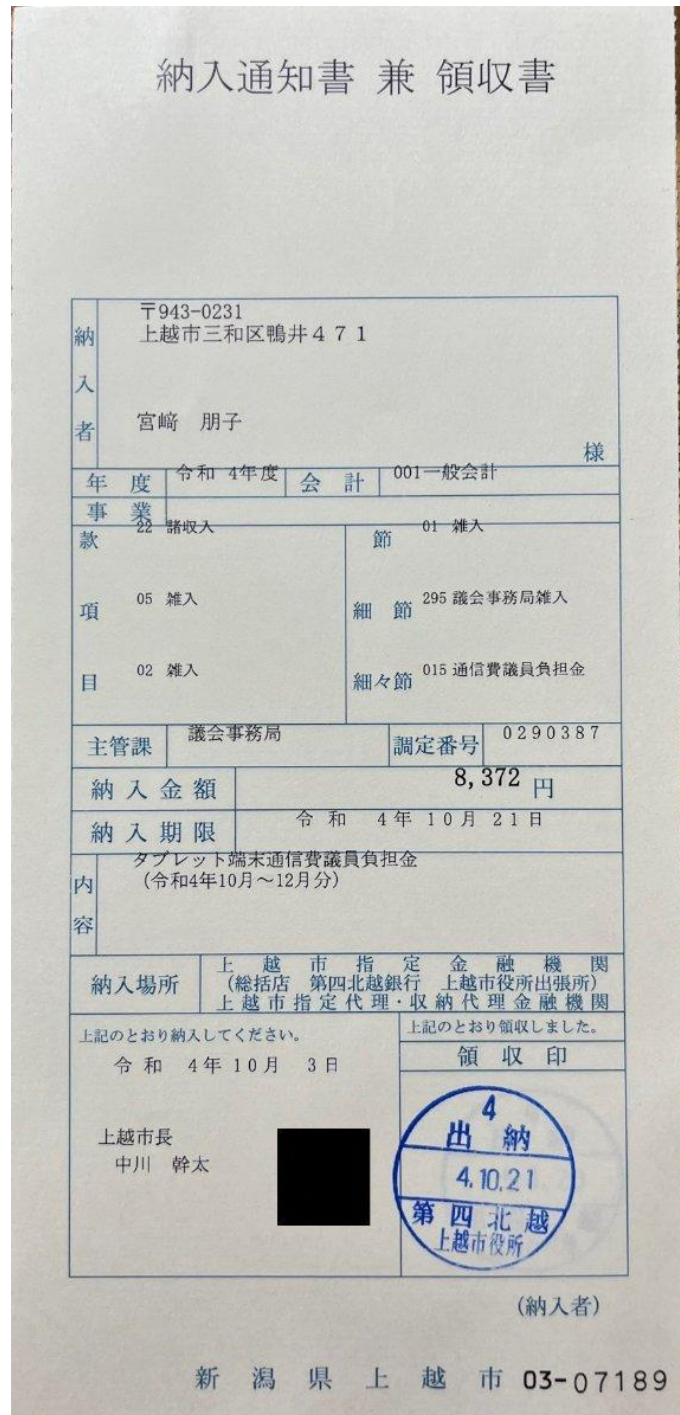 納入通知書 兼 領収書
〒943-0231
上越市三和区鴨井471
納入者
宮﨑 朋子
様
年度 令和 4年度 会計 001一般会計
事業
款 22 諸収入 節 01 雑入
項 05 雑入 細節 295 議会事務局雑入
目 02 雑入 細々節 015 通信費議員負担金
主管課 議会事務局 調定番号 0290387
納入金額 8,372 円
納入期限 令和 4年10月21日
内容 タブレット端末通信費議員負担金
(令和4年10月~12月分)
納入場所 上越市指定金融機関
(総括店 第四北越銀行 上越市役所出張所)
上越市指定代理・収納代理金融機関
上記のとおり納入してください。
令和 4年10月 3日
上越市長
中川 幹太
上記のとおり領収しました。
領収印
4
出納
4.10.21
第四北越
上越市役所
(納入者)
新潟県上越市 03-07189